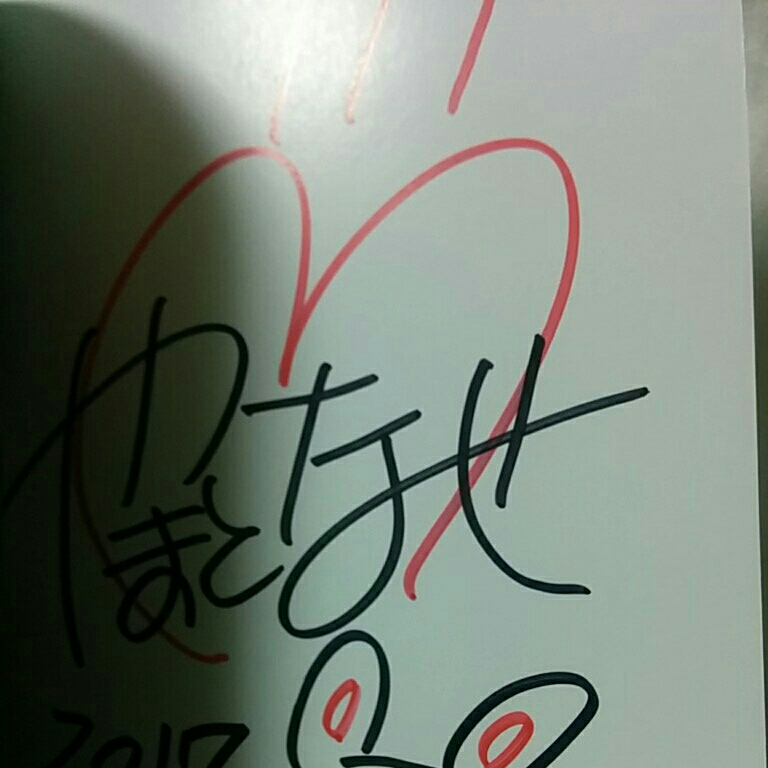 やなせ
まと
2017